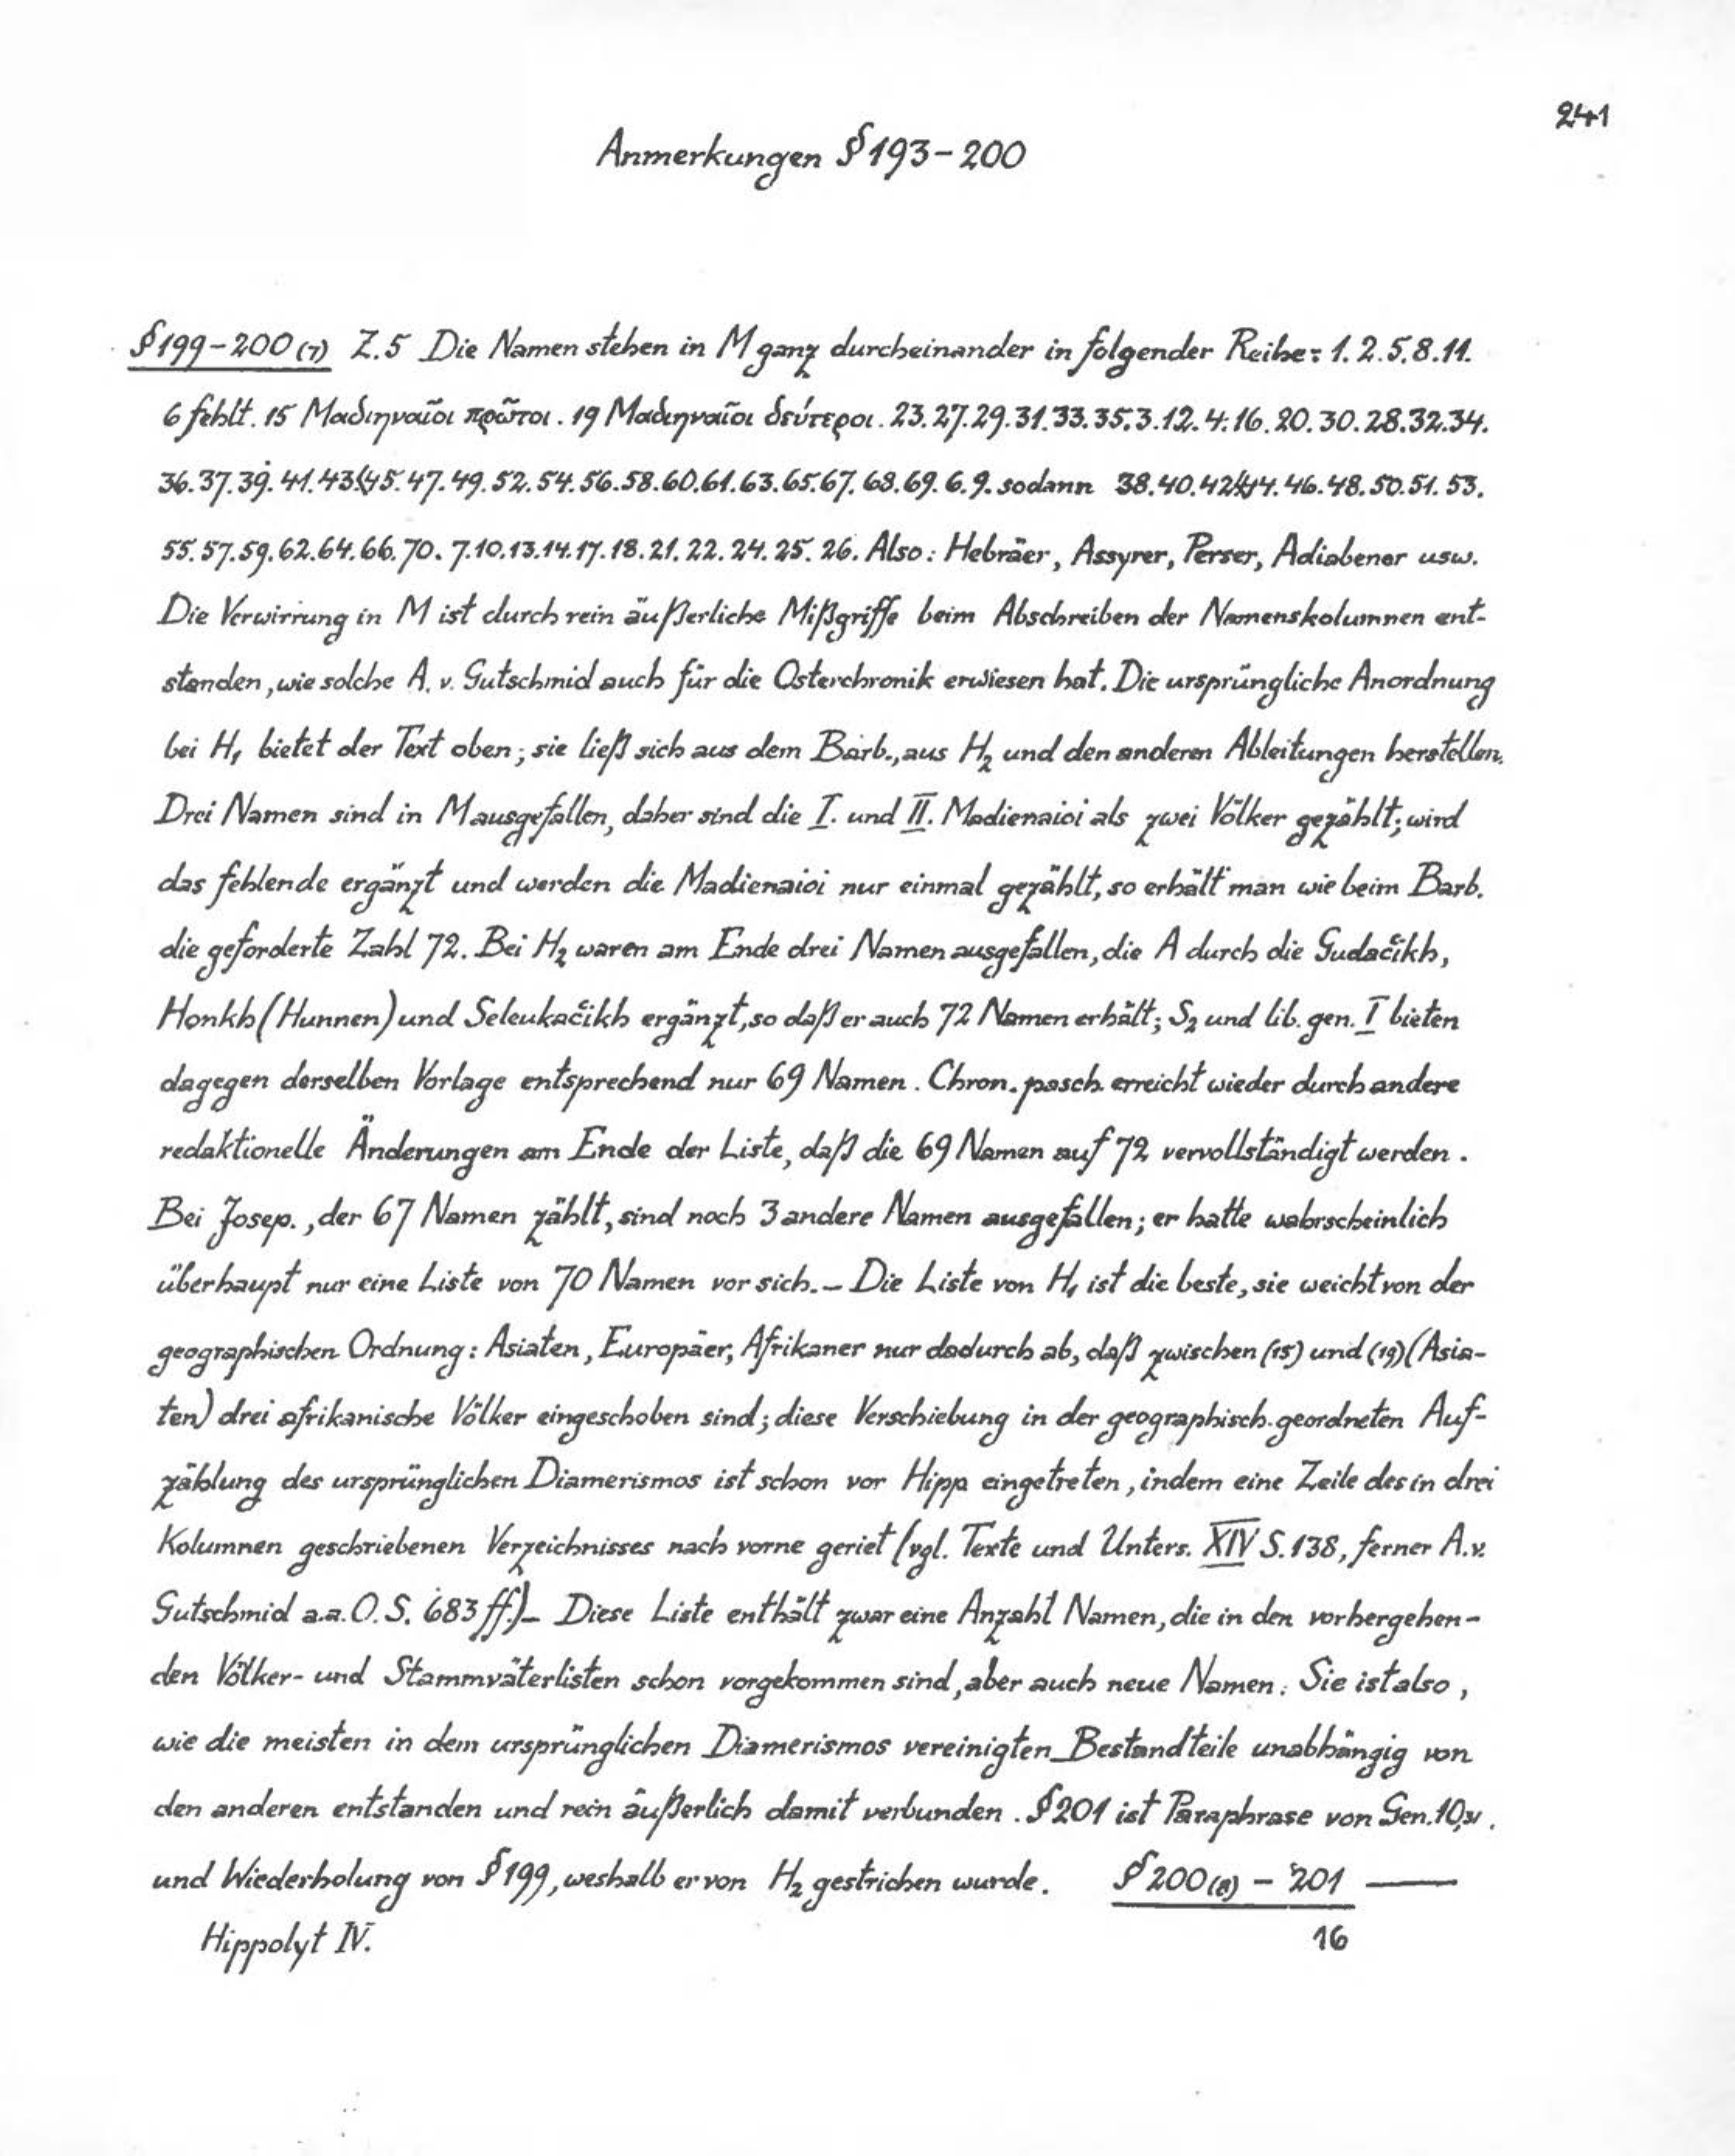 241
Anmerkungen § 193-200
§ 199-200 (7) Z. 5 Die Namen stehen in M ganz durcheinander in folgender Reihe: 1. 2. 5. 8. 11.
6 fehlt. 15 Μαδιηναῖοι πρῶτοι. 19 Μαδιηναῖοι δεύτεροι. 23. 27. 29. 31. 33. 35. 3. 12. 4. 16. 20. 30. 28. 32. 34.
36. 37. 39. 41. 43. 45. 47. 49. 52. 54. 56. 58. 60. 61. 63. 65. 67. 68. 69. 6. 9. sodann 38. 40. 42. 44. 46. 48. 50. 51. 53.
55. 57. 59. 62. 64. 66. 70. 7. 10. 13. 14. 17. 18. 21. 22. 24. 25. 26. Also: Hebräer, Assyrer, Perser, Adiabener usw.
Die Verwirrung in M ist durch rein äußerliche Mißgriffe beim Abschreiben der Namenskolumnen ent-
standen, wie solche A. v. Gutschmid auch für die Osterchronik erwiesen hat. Die ursprüngliche Anordnung
bei H₁ bietet der Text oben; sie ließ sich aus dem Barb., aus H₂ und den anderen Ableitungen herstellen.
Drei Namen sind in M ausgefallen, daher sind die I. und II. Madienaioi als zwei Völker gezählt; wird
das fehlende ergänzt und werden die Madienaioi nur einmal gezählt, so erhält man wie beim Barb.
die geforderte Zahl 72. Bei H₂ waren am Ende drei Namen ausgefallen, die A durch die Gudačikh,
Honkh (Hunnen) und Seleukačikh ergänzt, so daß er auch 72 Namen erhält; S₂ und lib. gen. I bieten
dagegen derselben Vorlage entsprechend nur 69 Namen. Chron. pasch. erreicht wieder durch andere
redaktionelle Änderungen am Ende der Liste, daß die 69 Namen auf 72 vervollständigt werden.
Bei Josep., der 67 Namen zählt, sind noch 3 andere Namen ausgefallen; er hatte wahrscheinlich
überhaupt nur eine Liste von 70 Namen vor sich. – Die Liste von H₁ ist die beste, sie weicht von der
geographischen Ordnung: Asiaten, Europäer, Afrikaner nur dadurch ab, daß zwischen (15) und (19) (Asia-
ten) drei afrikanische Völker eingeschoben sind; diese Verschiebung in der geographisch geordneten Auf-
zählung des ursprünglichen Diamerismos ist schon vor Hipp eingetreten, indem eine Zeile des in drei
Kolumnen geschriebenen Verzeichnisses nach vorne geriet (vgl. Texte und Unters. XIV S. 138, ferner A. v.
Gutschmid a. a. O. S. 683 ff.) – Diese Liste enthält zwar eine Anzahl Namen, die in den vorhergehen-
den Völker- und Stammväterlisten schon vorgekommen sind, aber auch neue Namen. Sie ist also,
wie die meisten in dem ursprünglichen Diamerismos vereinigten Bestandteile unabhängig von
den anderen entstanden und rein äußerlich damit verbunden. § 201 ist Paraphrase von Gen. 10,31.
und Wiederholung von § 199, weshalb er von H₂ gestrichen wurde. § 200 (8) – 201 —
Hippolyt IV. 16